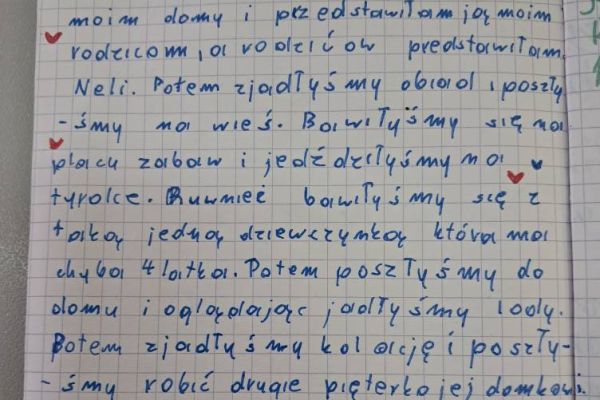 moim domy i przedstawiłam ją moim
rodzicom, a rodziców przedstawiłam
Neli. Potem zjadłyśmy obiad i poszły
-śmy na wieś. Bawiłyśmy się na
placu zabaw i jedździłyśmy na
tyrolce. Ruwnież bawiłyśmy się z
taką jedną dziewczynką która ma
chyba 4 latka. Potem poszłyśmy do
domu i oglądając jadłyśmy lody.
Potem zjadłyśmy kolację i poszły-
-śmy robić drugie pięterko jej domkowi.